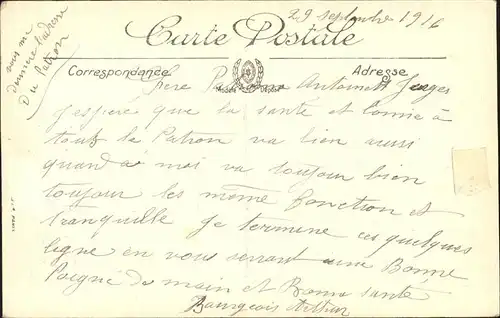 29 septembre 1916
vous me
donnerez l'adresse
Du Patron
Carte Postale
Correspondance
Adresse
Antoinette
J'espère que la santé et bonne à
tout le Patron va bien aussi
quand a moi va toujour bien
toujour les même fonction et
tranquille je termine ces quelques
ligne en vous serrant une Bonne
Poigné de main et Bonne santé
Bourgeois Arthur